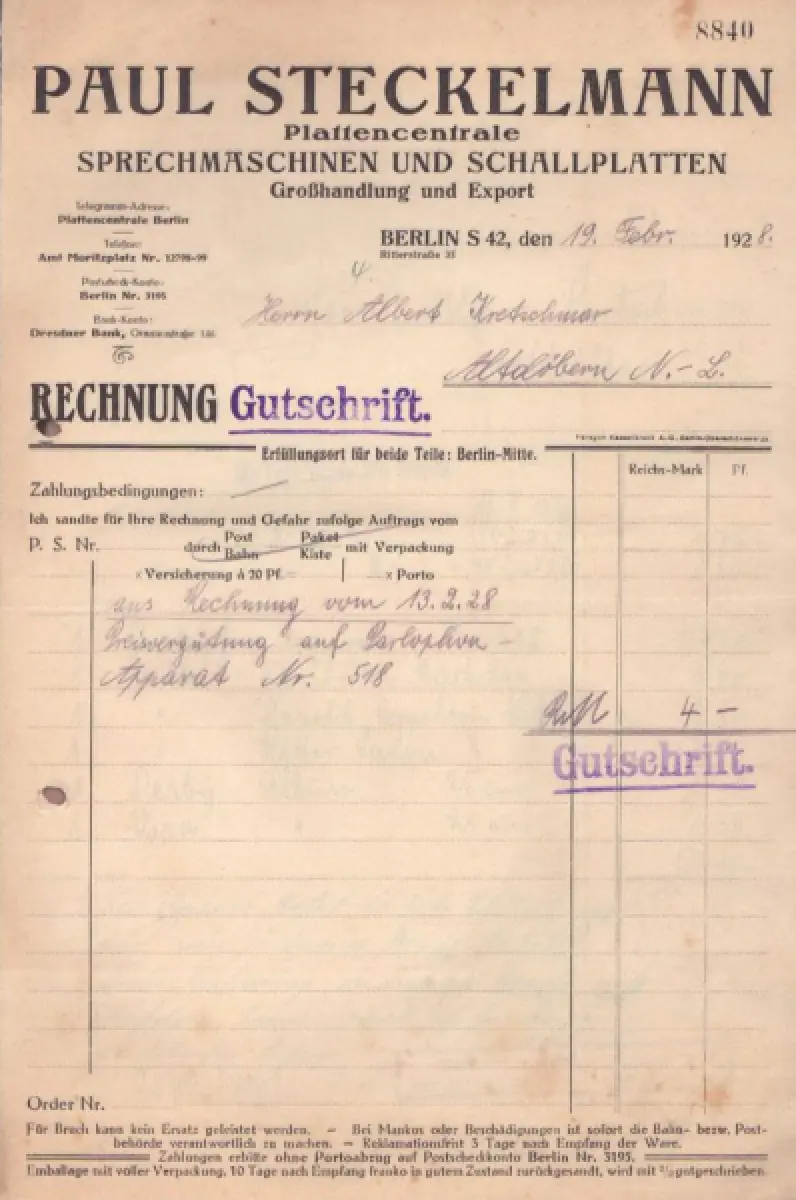 8840
PAUL STECKELMANN
Plattencentrale
SPRECHMASCHINEN UND SCHALLPLATTEN
Großhandlung und Export
Telegramm-Adresse:
Plattencentrale Berlin
Telefon:
Amt Moritzplatz Nr. 12798-99
Postscheck-Konto:
Berlin Nr. 3195
Bank-Konto:
Dresdner Bank,
BERLIN S 42, den 19. Febr. 1928.
Ritterstraße
Herrn Albert Kretschmar
Altdöbern N.-L.
RECHNUNG Gutschrift.
Erfüllungsort für beide Teile: Berlin-Mitte.
Reichs-Mark Pf.
Zahlungsbedingungen:
Ich sandte für Ihre Rechnung und Gefahr zufolge Auftrags vom
P. S. Nr. durch Post Bahn Paket Kiste mit Verpackung
x Versicherung à 20 Pf. x Porto
aus Rechnung vom 13.2.28
Preisvergütung auf Parlophon-
Apparat Nr. 518
RM 4 -
Gutschrift.
Order Nr.
Für Bruch kann kein Ersatz geleistet werden. — Bei Mankos oder Beschädigungen ist sofort die Bahn- bezw. Post-
behörde verantwortlich zu machen. — Reklamationsfrist 3 Tage nach Empfang der Ware.
Zahlungen erbitte ohne Portoabzug auf Postscheckkonto Berlin Nr. 3195.
Emballage mit voller Verpackung, 10 Tage nach Empfang franko in gutem Zustand zurückgesandt, wird mit 2/3 gutgeschrieben.